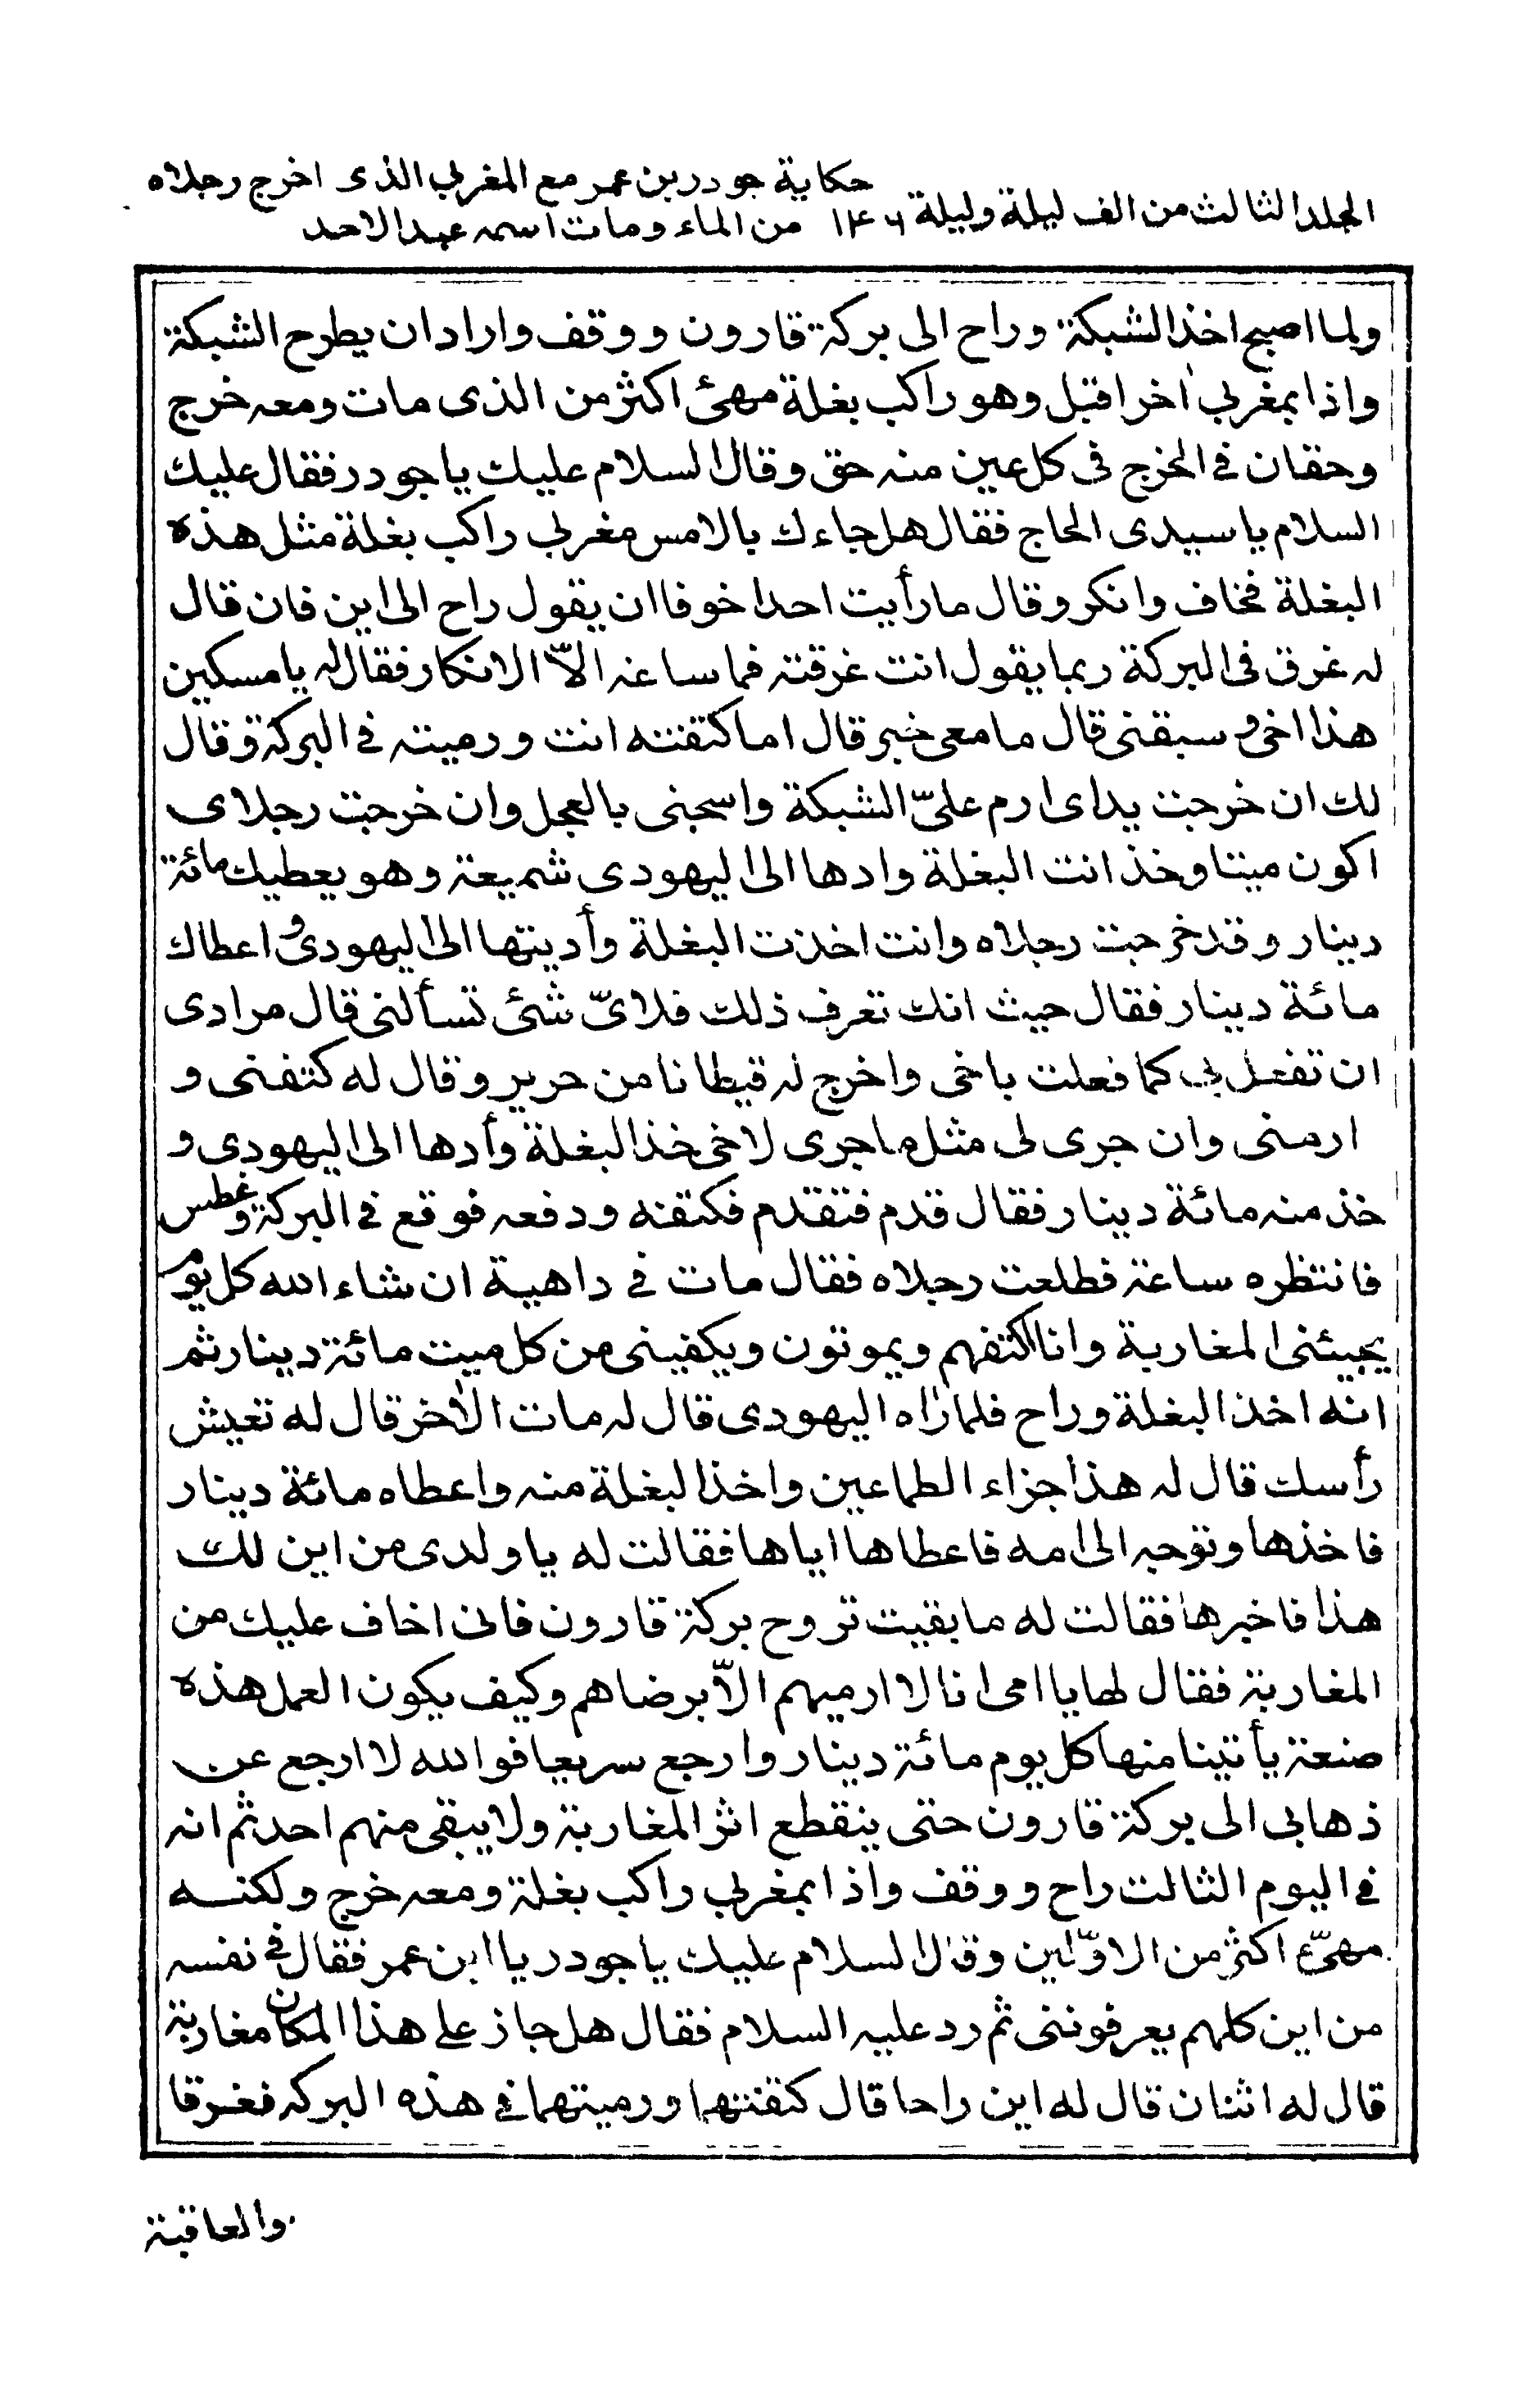 الجلد الثالث من الف ليلة وليلة ١٤٦ حكاية جودر بن عمر مع المغربي الذى اخرج رجلاه
من الماء ومات اسمه عبد الاحد
ولما اصبح اخذ الشبكة وراح الى بركة قارون ووقف واراد ان يطرح الشبكة
واذا بمغربي اخر اقبل وهو راكب بغلة مهئ اكثر من الذى مات ومعه خرج
وحقان فى الخرج فى كل عين منه حق وقال السلام عليك يا جودر فقال عليك
السلام يا سيدى الحاج فقال هل جاءك بالامس مغربي راكب بغلة مثل هذه
البغلة فخاف وانكر وقال ما رأيت احدا خوفا ان يقول راح الى اين فان قال
له غرق فى البركة ربما يقول انت غرقته فما ساعه الاّ الانكار فقال له يا مسكين
هذا اخى وسبقنى قال ما معى خبر قال اما كتفته انت ورميته فى البركة وقال
لك ان خرجت يداى ارم علىّ الشبكة واسحبنى بالعجل وان خرجت رجلاى
اكون ميتا وخذ انت البغلة وادها الى اليهودى شميعة وهو يعطيك مائة
دينار وقد خرجت رجلاه وانت اخذت البغلة وأديتها الى اليهودى واعطاك
مائة دينار فقال حيث انك تعرف ذلك فلاىّ شئ تسألنى قال مرادى
ان تفعل بى كما فعلت باخى واخرج له قيطانا من حرير وقال له كتفنى و
ارمنى وان جرى لى مثل ما جرى لاخى خذ البغلة وأدها الى اليهودى و
خذ منه مائة دينار فقال قدم فتقدم فكتفه ودفعه فوقع فى البركة وغطس
فانتظره ساعة فطلعت رجلاه فقال مات فى داهية ان شاء الله كل يوم
يجيئنى المغاربة وانا اكتفهم ويموتون ويكفينى من كل ميت مائة دينار ثم
انه اخذ البغلة وراح فلما رٰاه اليهودى قال له مات الاٰخر قال له تعيش
رأسك قال له هذا جزاء الطماعين واخذ البغلة منه واعطاه مائة دينار
فاخذها وتوجه الى امه فاعطاها اياها فقالت له يا ولدى من اين لك
هذا فاخبرها فقالت له ما بقيت تروح بركة قارون فانى اخاف عليك من
المغاربة فقال لها يا امى انا لا ارميهم الاّ برضاهم وكيف يكون العمل هذه
صنعة يأتينا منها كل يوم مائة دينار وارجع سريعا فوالله لا ارجع عن
ذهابى الى بركة قارون حتى ينقطع اثر المغاربة ولا يبقى منهم احد ثم انه
فى اليوم الثالث راح ووقف واذا بمغربي راكب بغلة ومعه خرج ولكنه
مهىّء اكثر من الاوّلين وقال السلام عليك يا جودر يا ابن عمر فقال فى نفسه
من اين كلهم يعرفوننى ثم رد عليه السلام فقال هل جاز على هذا المكان مغاربة
قال له اثنان قال له اين راحا قال كتفتهما ورميتهما فى هذه البركه فغرقا
والعاقبة